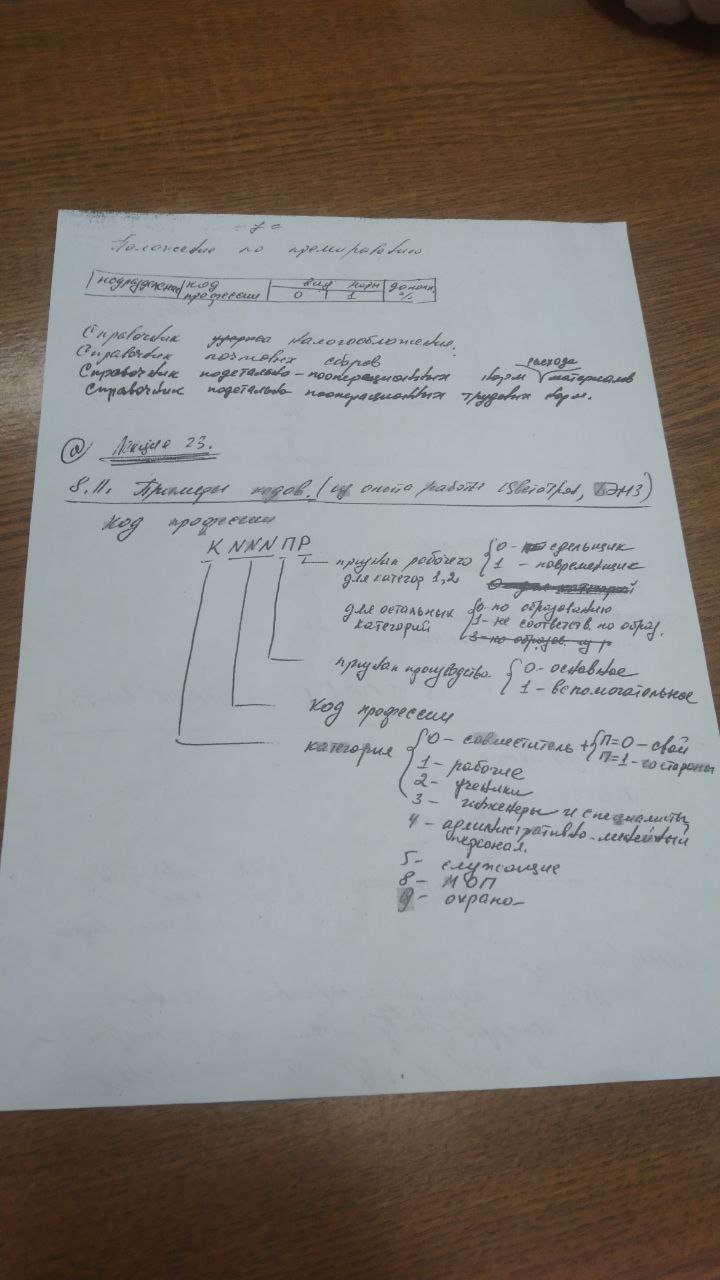 - 7 -
Положение по премированию
подразделение код вид норм дополн.
профессии 0 1 %
Справочник налогообложения.
Справочник почтовых сборов
расхода
Справочник подетально-пооперационных норм материалов
Справочник подетально пооперационных трудовых норм.
@ Лекция 23.
8.11. Примеры кодов. (из опыта работы Светотрон, БЭНЗ)
Код профессии
К N N N П Р
признак рабочего 0 - сдельщик
для категор 1,2 1 - повременщик
для остальных 0 по образованию
категорий 1 - не соответств. по образ.
признак производства 0 - основное
1 - вспомогательное
Код профессии
категория 0 - совместитель + П=0 - свой
П=1 - со стороны
1 - рабочие
2 - ученики
3 - инженеры и специалисты
4 - административно-линейный
персонал.
5 - служащие
8 - МОП
9 - охрана